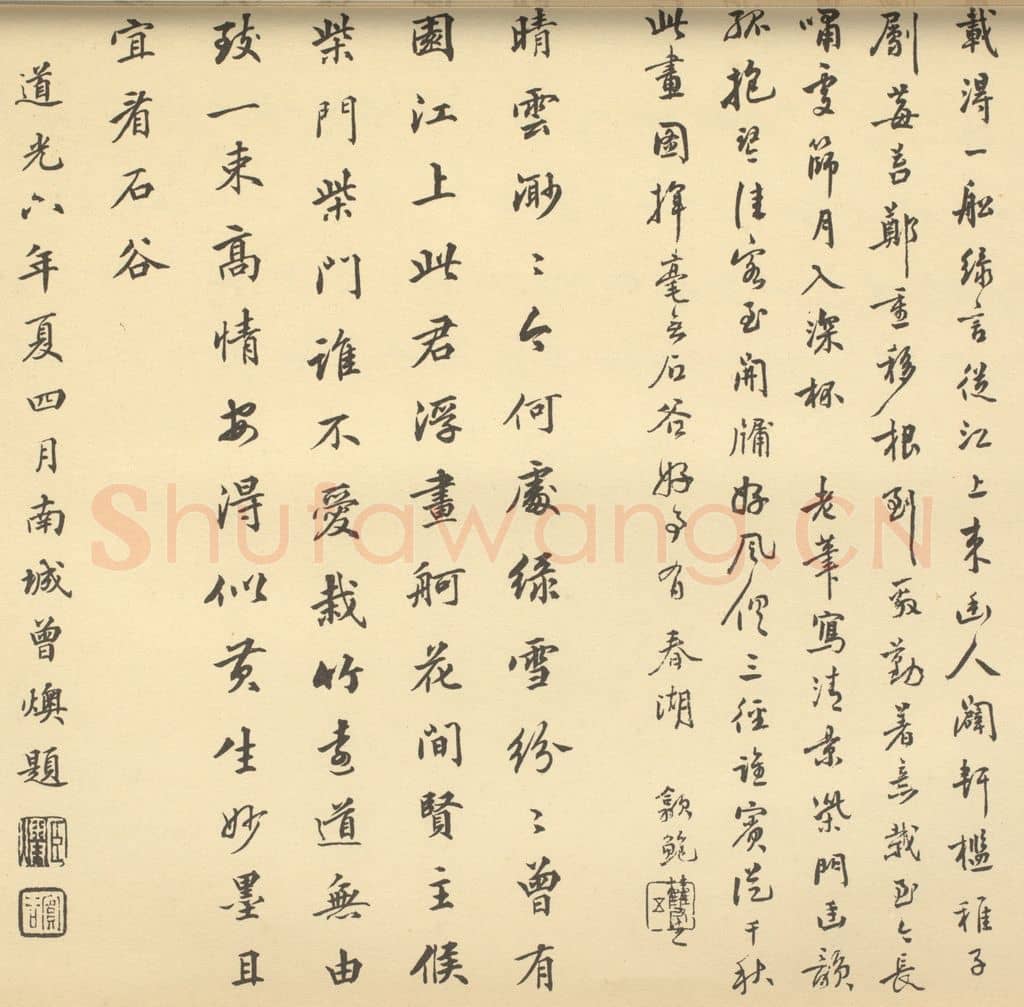 載得一船綠言從江上來幽人闢軒檻稚子
劚莓苔鄭重移根到殷勤著意栽至今長
嘯處篩月入深杯 老筆寫清景柴門画韻
孤抱琴佳客至開牖好風俱三徑誰賓從千秋
此畫圖揮毫無石谷好手有春湖 歙鮑
晴雲渺〻今何處綠雪紛〻曾有
園江上此君浮畫舸花間賢主候
柴門柴門誰不愛栽竹遠道無由
致一束高情安得似黃生妙墨且
宜看石谷
道光六年夏四月南城曾燠題
Shufawang.CN